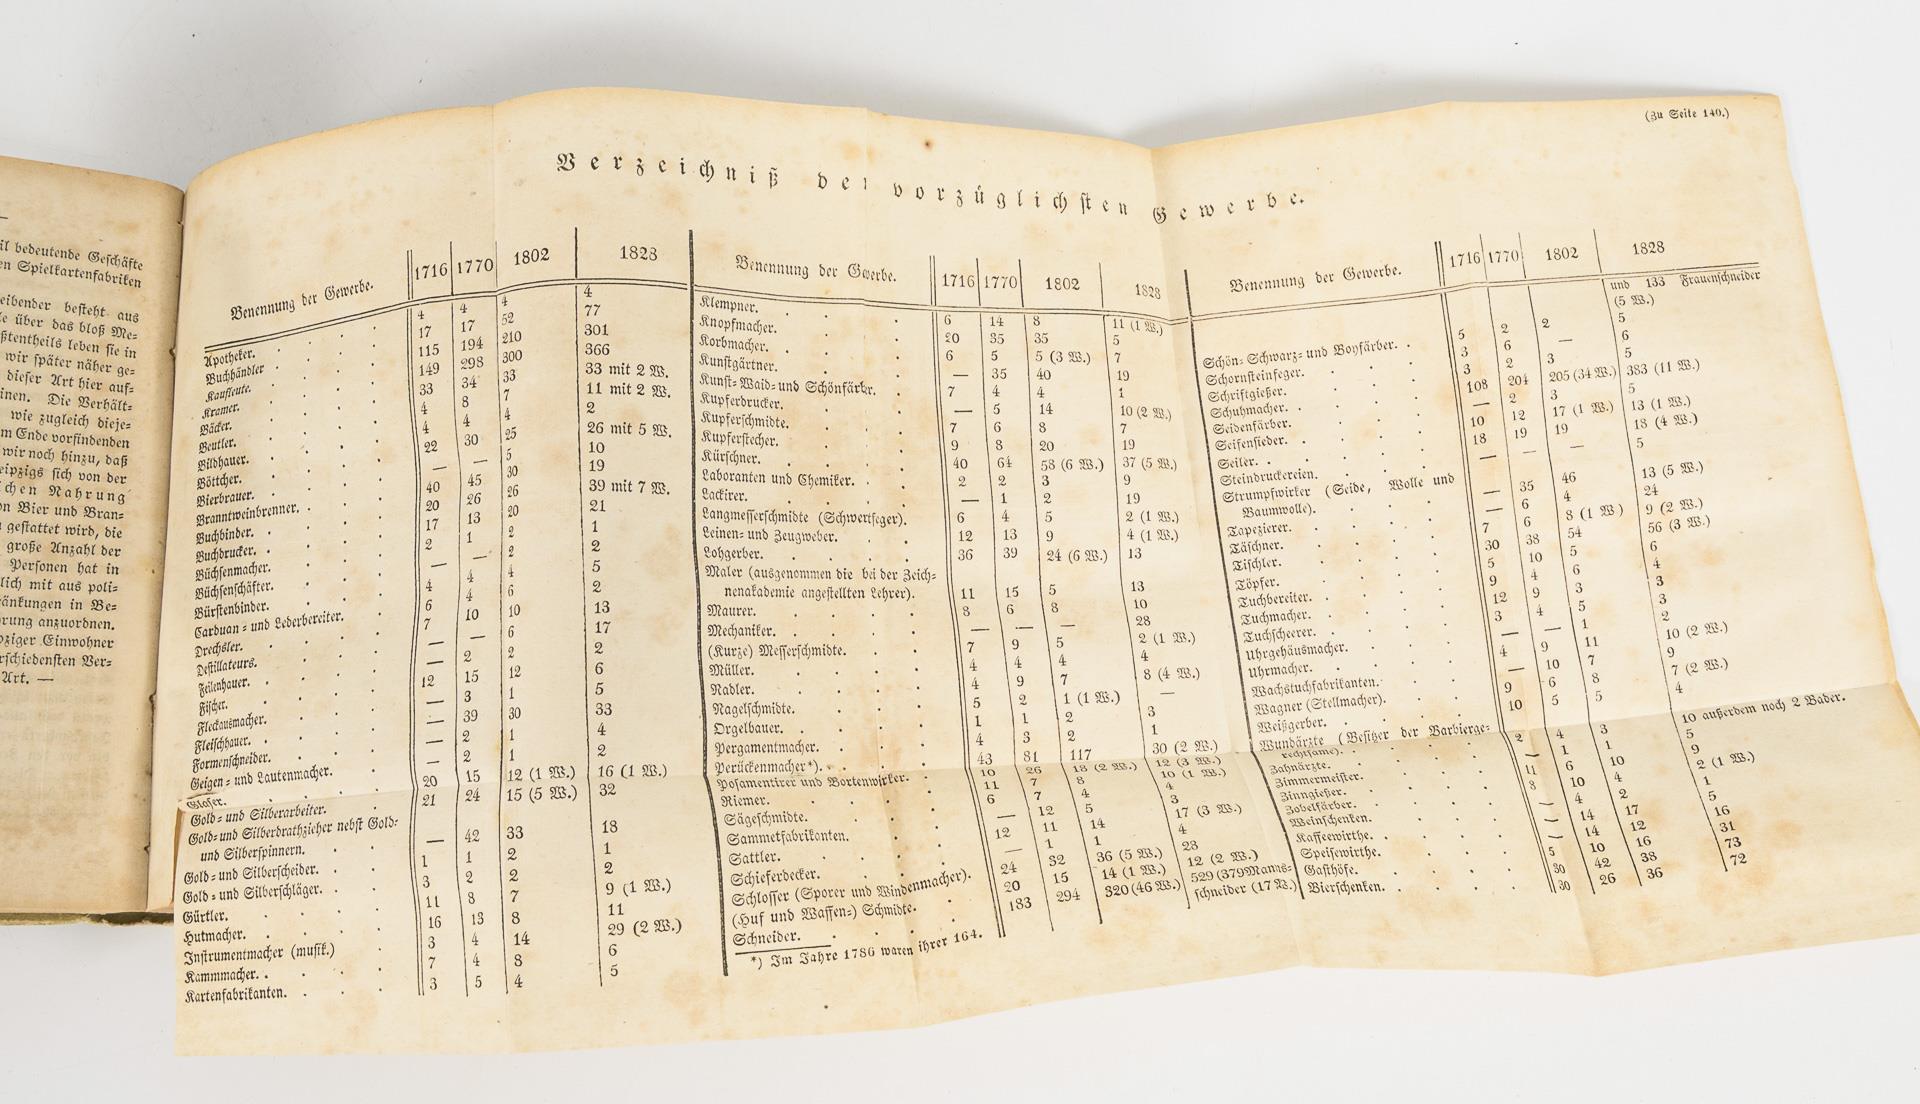 il bedeutende Geschäfte
en Spielkartenfabriken
eibender besteht aus
le über das bloß Me-
ßtentheils leben sie in
wir später näher ge-
dieser Art hier auf-
inen. Die Verhält-
wie zugleich dieje-
m Ende vorfindenden
wir noch hinzu, daß
eipzigs sich von der
ichen Nahrung
on Bier und Bran-
gestattet wird, die
große Anzahl der
Personen hat in
lich mit aus poli-
änkungen in Be-
rung anzuordnen.
pziger Einwohner
rschiedensten Ver-
Art. —
(Zu Seite 140.)
Verzeichniß der vorzüglichsten Gewerbe.
Benennung der Gewerbe. 1716 1770 1802 1828
Apotheker. 4 4 4 4
Buchhändler 17 17 52 77
Kaufleute. 115 194 210 301
Kramer. 149 298 300 366
Bäcker. 33 34 33 33 mit 2 W.
Beutler. 4 8 7 11 mit 2 W.
Bildhauer. 4 4 4 2
Böttcher. 22 30 25 26 mit 5 W.
Bierbrauer. — — 5 10
Branntweinbrenner. 40 45 30 19
Buchbinder. 20 26 26 39 mit 7 W.
Buchdrucker. 17 13 20 21
Büchsenmacher. 2 1 2 1
Büchsenschäfter. — — 2 2
Bürstenbinder. 4 4 4 5
Carduan- und Lederbereiter. 6 4 6 2
Drechsler. 7 10 10 13
Destillateurs. — — 6 17
Feilenhauer. — 2 2 2
Fischer. 12 15 12 6
Fleckausmacher. — 3 1 5
Fleischhauer. — 39 30 33
Formenschneider. — 2 1 4
Geigen- und Lautenmacher. — 2 1 2
Glaser. 20 15 12 (1 W.) 16 (1 W.)
Gold- und Silberarbeiter. 21 24 15 (5 W.) 32
Gold- und Silberdrathzieher nebst Gold-
und Silberspinnern. — 42 33 18
Gold- und Silberscheider. 1 1 2 1
Gold- und Silberschläger. 3 2 2 2
Gürtler. 11 8 7 9 (1 W.)
Hutmacher. 16 13 8 11
Instrumentmacher (musik.) 3 4 14 29 (2 W.)
Kammmacher. 7 4 8 6
Kartenfabrikanten. 3 5 4 5
Benennung der Gewerbe. 1716 1770 1802 1828
Klempner. 6 14 8 11 (1 W.)
Knopfmacher. 20 35 35 5
Korbmacher. 6 5 5 (3 W.) 7
Kunstgärtner. — 35 40 19
Kunst- Waid- und Schönfärber. 7 4 4 1
Kupferdrucker. — 5 14 10 (2 W.)
Kupferschmidte. 7 6 8 7
Kupferstecher. 9 8 20 19
Kürschner. 40 64 58 (6 W.) 37 (5 W.)
Laboranten und Chemiker. 2 2 3 9
Lackirer. — 1 2 19
Langmesserschmidte (Schwertfeger). 6 4 5 2 (1 W.)
Leinen- und Zeugweber. 12 13 9 4 (1 W.)
Lohgerber. 36 39 24 (6 W.) 13
Maler (ausgenommen die bei der Zeich-
nenakademie angestellten Lehrer). 11 15 5 13
Maurer. 8 6 8 10
Mechaniker. — — — 28
(Kurze) Messerschmidte. 7 9 5 2 (1 W.)
Müller. 4 4 4 4
Nadler. 4 9 7 8 (4 W.)
Nagelschmidte. 5 2 1 (1 W.) —
Orgelbauer. 1 1 2 3
Pergamentmacher. 4 3 2 1
Perückenmacher*). 43 81 117 30 (2 W.)
Posamentirer und Bortenwirker. 10 26 18 (2 W.) 12 (3 W.)
Riemer. 11 7 8 10 (1 W.)
Sägeschmidte. 6 7 4 4
Sammetfabrikanten. — 12 5 3
Sattler. 12 11 14 17 (3 W.)
Schieferdecker. — 1 1 4
Schlosser (Sporer und Windenmacher). 24 32 36 (5 W.) 28
(Huf und Waffen-) Schmidte. 20 15 14 (1 W.) 12 (2 W.)
Schneider. 183 294 320 (46 W.) 529 (379 Manns-
schneider (17 W.)
*) Im Jahre 1786 waren ihrer 164.
Benennung der Gewerbe. 1716 1770 1802 1828
und 133 Frauenschneider
(5 W.)
Schön- Schwarz- und Boyfärber. 5 2 2 5
Schornsteinfeger. 3 6 — 6
Schriftgießer. 3 2 3 5
Schuhmacher. 108 204 205 (34 W.) 383 (11 W.)
Seidenfärber. — 2 3 5
Seifensieder. 10 12 17 (1 W.) 13 (1 W.)
Seiler. 18 19 19 18 (4 W.)
Steindruckereien. — — — 5
Strumpfwirker (Seide, Wolle und
Baumwolle). — 35 46 13 (5 W.)
Tapezierer. — 6 4 24
Täschner. 7 6 8 (1 W) 9 (2 W.)
Tischler. 30 38 54 56 (3 W.)
Töpfer. 5 10 5 6
Tuchbereiter. 9 4 6 4
Tuchmacher. 12 9 3 3
Tuchscheerer. 3 4 5 3
Uhrgehäusmacher. — — 1 2
Uhrmacher. 4 9 11 10 (2 W.)
Wachstuchfabrikanten. — 10 7 9
Wagner (Stellmacher). 9 6 8 7 (2 W.)
Weißgerber. 10 5 5 4
Wundärzte (Besitzer der Barbierge-
rechtsame). 2 4 3 10 außerdem noch 2 Bader.
Zahnärzte. — 1 1 5
Zimmermeister. 11 6 10 9
Zinngießer. 8 10 4 2 (1 W.)
Zobelfärber. — 4 2 1
Weinschenken. — 14 17 5
Kaffeewirthe. — 14 12 16
Speisewirthe. 5 10 16 31
Gasthöfe. 30 42 38 73
Bierschenken. 30 26 36 72